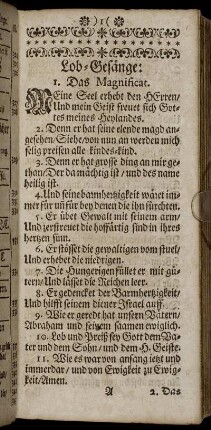 )1(
Lob-Gesänge:
1. Das Magnificat.
MEine Seel erhebt den HErren/
Und mein Geist freuet sich Got-
tes meines Heylandes.
2. Denn er hat seine elende magd an-
gesehen/ Siehe von nun an werden mich
selig preisen alle kindes-kind.
3. Denn er hat grosse ding an mir ge-
than/ Der da mächtig ist / und des name
heilig ist.
4. Und seine barmhertzigkeit wäret im-
mer für und für bey denen die ihn fürchten.
5. Er übet Gewalt mit seinem arm/
Und zerstreuet die hoffärtig sind in ihres
hertzen sinn.
6. Er stösset die gewaltigen vom stuel/
Und erhebet die niedrigen.
7. Die Hungerigen füllet er mit gü-
tern/ Und lässet die Reichen leer.
8. Er gedencket der Barmhertzigkeit/
Und hilfft seinem diener Israel auf.
9. Wie er geredt hat unsern Vätern/
Abraham und seinem saamen ewiglich.
10. Lob und Preiß sey Gott dem Va-
ter und dem Sohn/ und dem H. Geiste.
11. Wie es war von anfang jetzt und
immerdar / und von Ewigkeit zu Ewig-
keit/ Amen.
A 2. Das